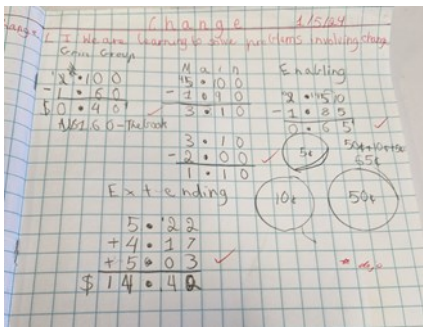 Change 1/5/24
L I We are learning to solve problems involving change
Group
2.00
- 1.60
$0.40
A/$1.60 - The book
Main
5.00
- 1.90
3.10
3.10
- 2.00
1.10
Enabling
2.50
- 1.85
0.65
5¢
50¢+10¢+5¢
65¢
10¢
50¢
Extending
5.22
+4.17
+5.03
$14.42